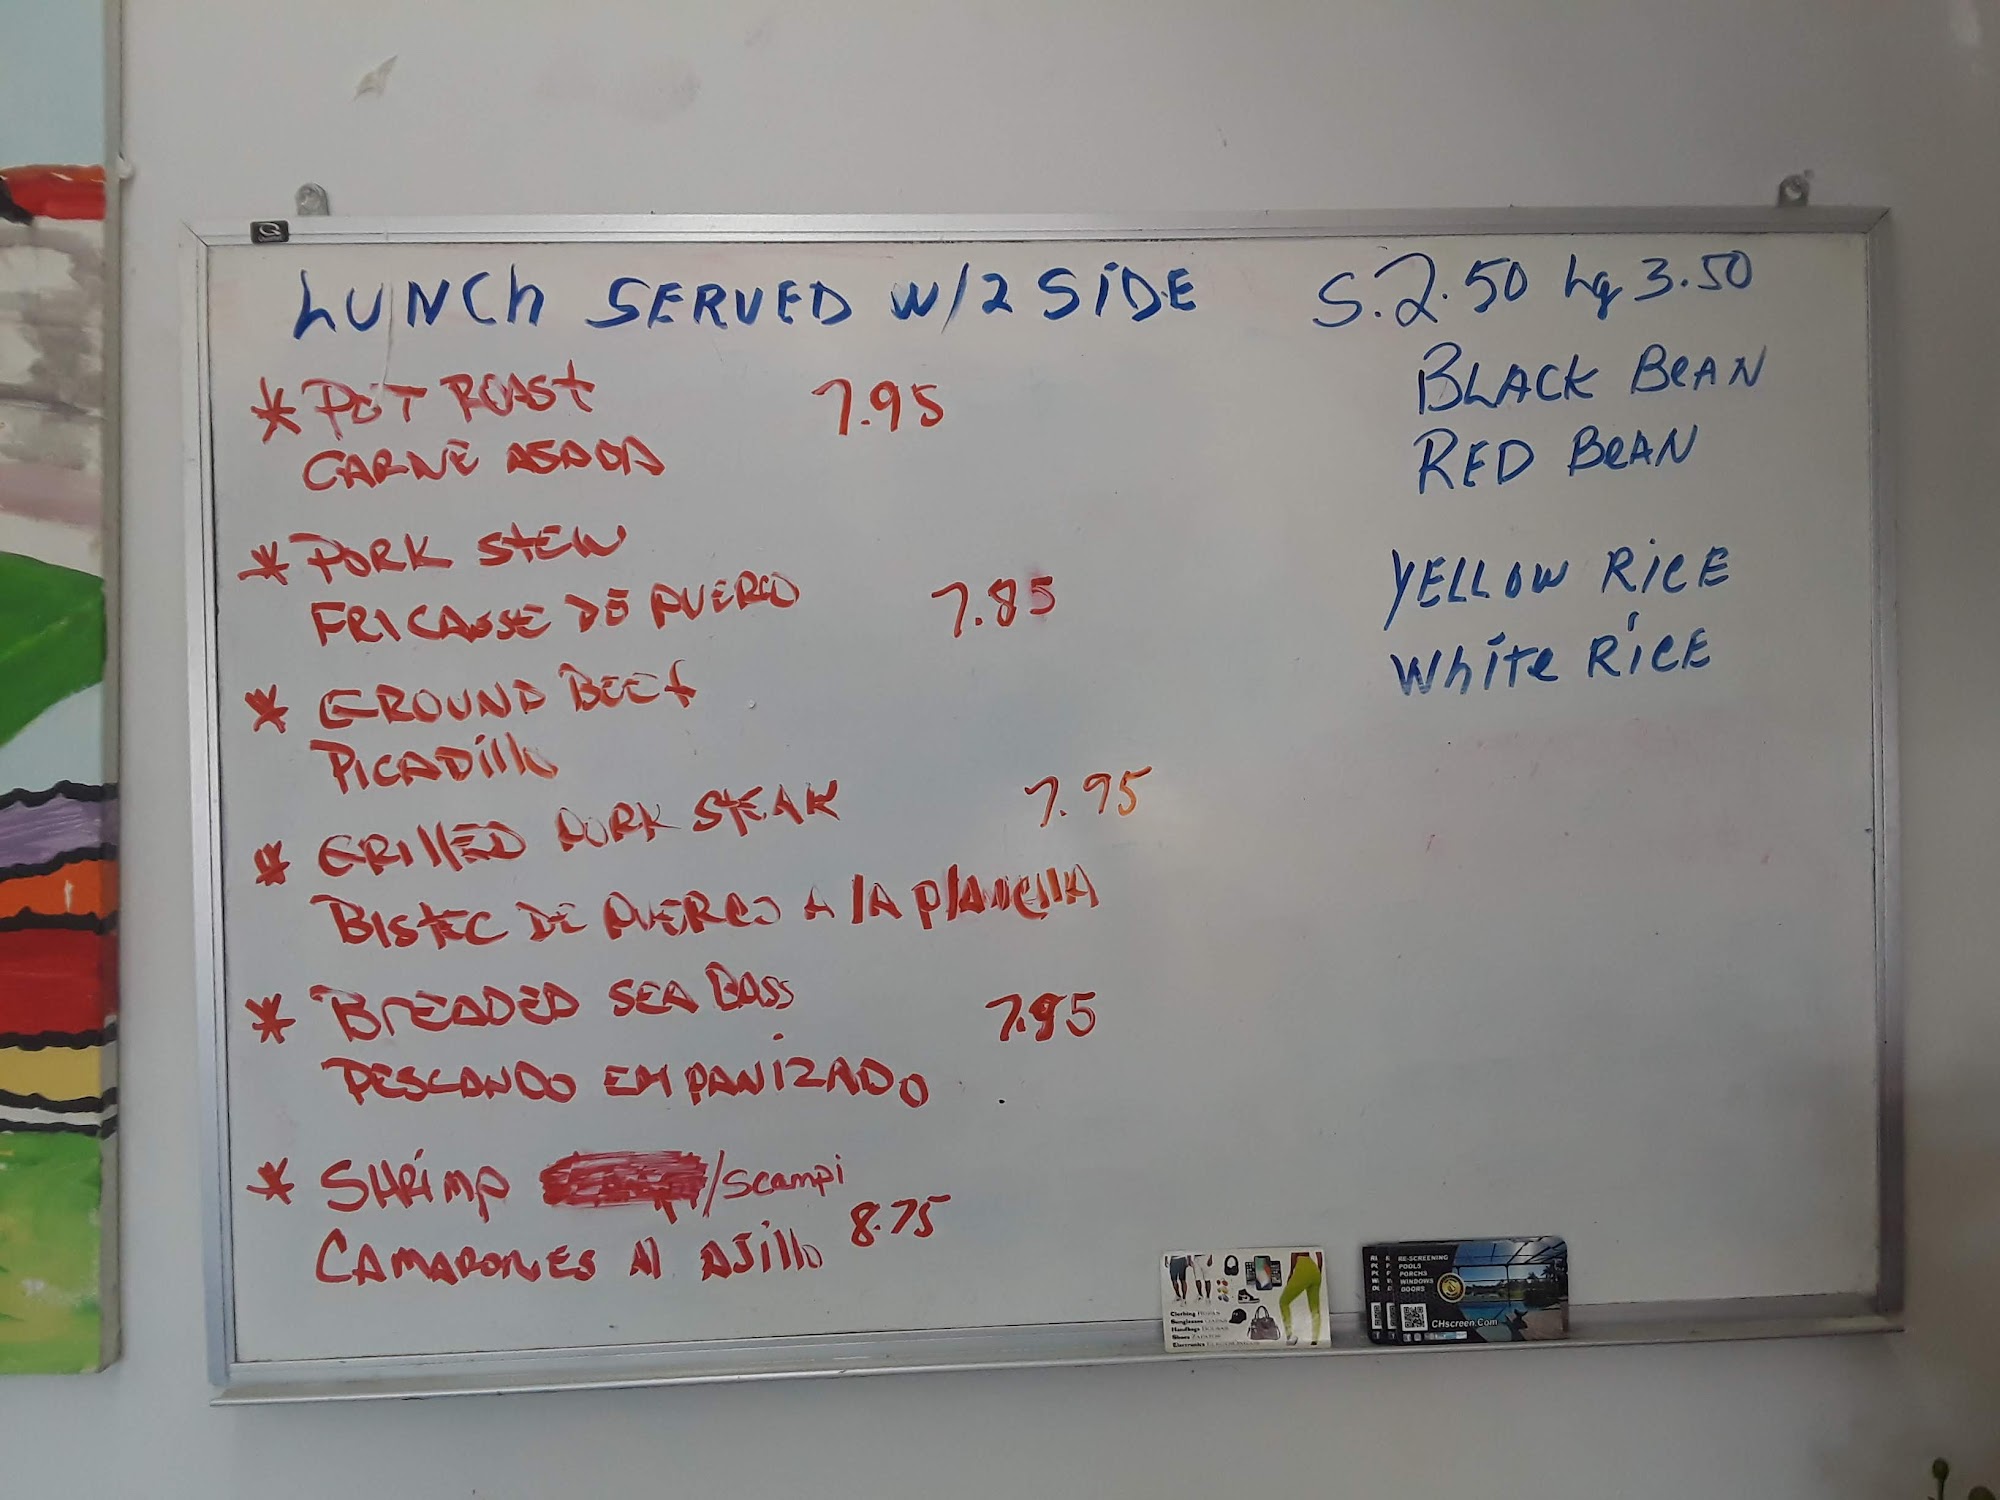 LUNCh SERVED W/2 SiDE
S. 2.50 Lg 3.50
* POT ROASt 7.95
CARNE ASADA
* PORK StEW
FRICASSE DE PUERCO 7.85
* GROUND BEEf
PICADillo
* GRillED PORK STEAK 7.95
BIStEC DE PUERCO A lA PlANCHA
* BrEADED SEA BASS 7.95
PESCANDO EMPANiZADO
* SHRiMP /Scampi
CAMARONES Al AJillo 8.75
BLACK BeAN
RED BeAN
YELLOW RiCE
WhiTe RiCE
Clothing
Sunglasses
Handbags
Shoes ZAPATOS
Electronics
RE-SCREENING
POOLS
PORCHS
WINDOWS
DOORS
CHscreen.Com